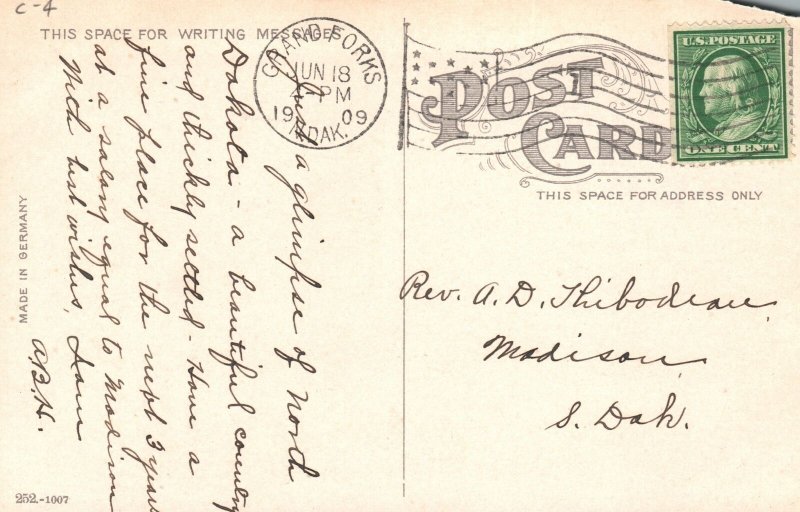 C-4
THIS SPACE FOR WRITING MESSAGES
GRAND FORKS
JUN 18
PM
1909
N. DAK.
POST
CARD
THIS SPACE FOR ADDRESS ONLY
U.S. POSTAGE
ONE CENT
Just a glimpse of North
Dakota - a beautiful country
and thickly settled - Have a
fine place for the next 3 years
at a salary equal to Madison
With best wishes, I am
A.B.H.
Rev. A. D. Thibodeau
Madison
S. Dak.
MADE IN GERMANY
252.-1007